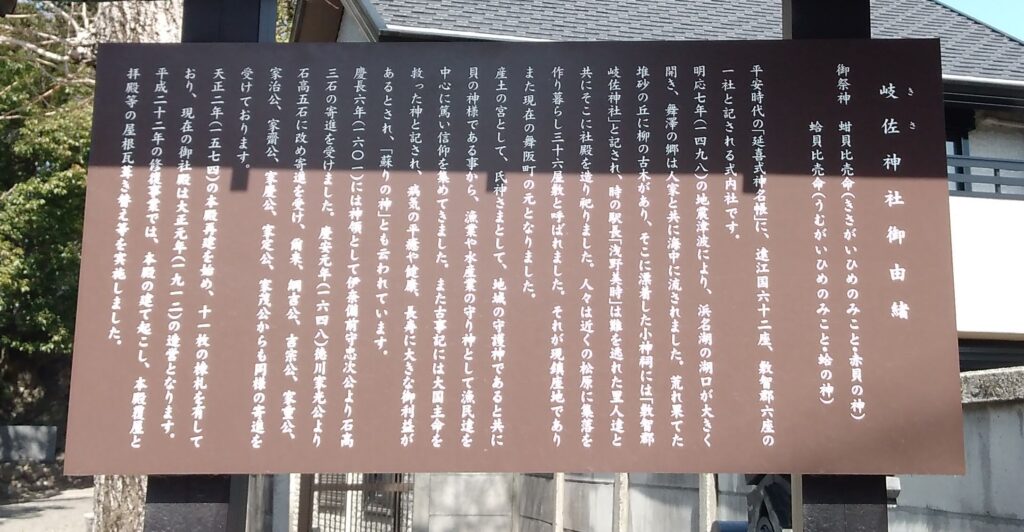 岐佐神社御由緒
きさ
御祭神 蚶貝比売命(きさがいひめのみこと・赤貝の神)
蛤貝比売命(うむがいひめのみこと・蛤の神)
平安時代の「延喜式神名帳」に、遠江国六十二座、敷智郡六座の
一社と記される式内社です。
明応七年(一四九八)の地震津波により、浜名湖の湖口が大きく
開き、舞澤の郷は人家と共に海中に流されました。荒れ果てた
堆砂の丘に柳の古木があり、そこに漂着した小神祠には「敷智郡
岐佐神社」と記され、時の駅長「浅野美時」は難を逃れた里人達と
共にそこに社殿を造り祀りました。人々は近くの松原に集落を
作り暮らし三十六屋敷と呼ばれました。それが現鎮座地であり
また現在の舞阪町の元となりました。
産土の宮として、氏神さまとして、地域の守護神であると共に
貝の神様である事から、漁業や水産業の守り神として漁民達を
中心に篤い信仰を集めてきました。また古事記には大国主命を
救った神と記され、病気の平癒や健康、長寿に大きな御利益が
あるとされ、「蘇りの神」とも云われています。
慶長六年(一六〇一)には神領として伊奈備前守忠次公より石高
三石の寄進を受けました。慶安元年(一六四八)徳川家光公より
石高五石に改め寄進を受け、爾来、綱吉公、吉宗公、家重公、
家治公、家齋公、家慶公、家定公、家茂公からも同様の寄進を
受けております。
天正二年(一五七四)の本殿再建を始め、十一枚の棟札を有して
おり、現在の御社殿は大正元年(一九一二)の造営となります。
平成二十二年の修復事業では、本殿の建て起こし、本殿覆屋と
拝殿等の屋根瓦葺き替え等を実施しました。